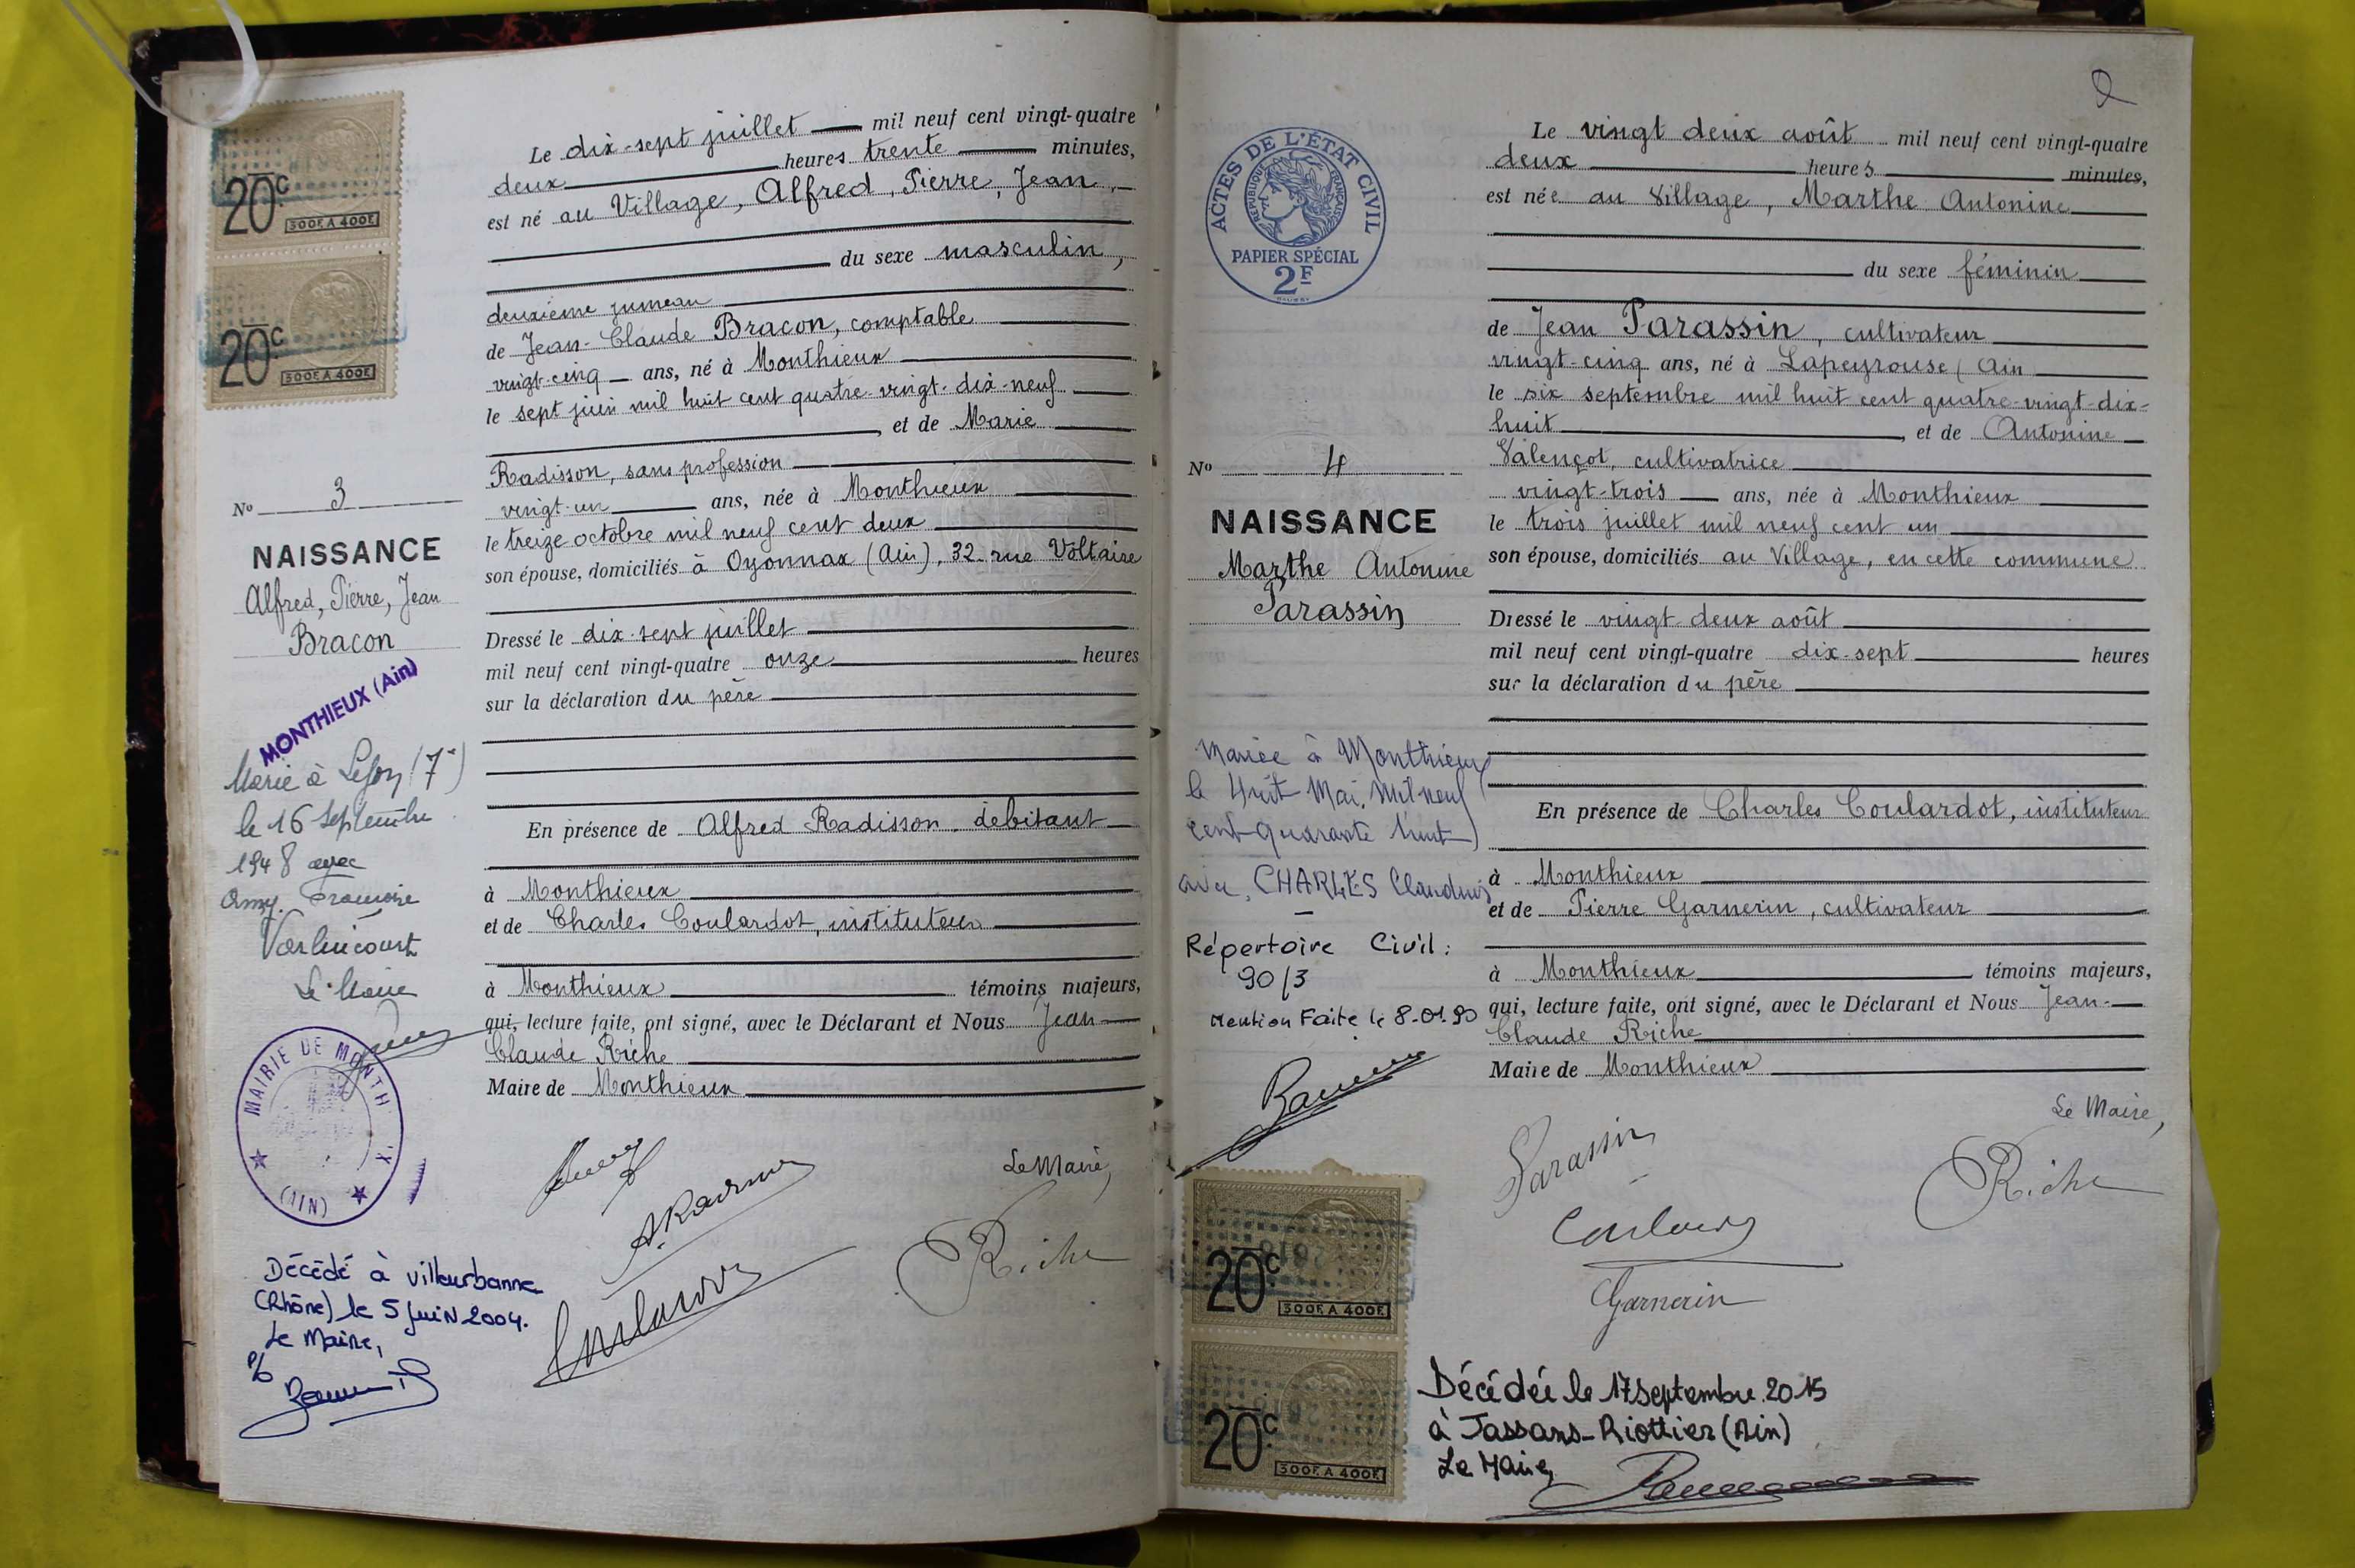 20c
300F. A 400F.
20c
300F. A 400F.
Nº 3
NAISSANCE
Alfred, Pierre, Jean
Bracon
MONTHIEUX (Ain)
Marié à Lyon (7e)
le 16 Septembre
1948 avec
Amy. Françoise
Varlincourt
Le Maire
MAIRIE DE MONTH X
(AIN)
Décédé à villeurbanne
(Rhône) le 5 Juin 2004.
Le Maire,
Le dix-sept juillet mil neuf cent vingt-quatre
deux heures trente minutes,
est né au Village, Alfred, Pierre, Jean,
du sexe masculin,
deuxième jumeau
de Jean-Claude Bracon, comptable
vingt-cinq ans, né à Monthieux
le sept juin mil huit cent quatre-vingt-dix-neuf
, et de Marie
Radisson, sans profession
vingt-un ans, née à Monthieux
le treize octobre mil neuf cent deux
son épouse, domiciliés à Oyonnax (Ain), 32 rue Voltaire
Dressé le dix-sept juillet
mil neuf cent vingt-quatre onze heures
sur la déclaration du père
En présence de Alfred Radisson, débitant
à Monthieux
et de Charles Coulardot, instituteur
à Monthieux témoins majeurs,
qui, lecture faite, ont signé, avec le Déclarant et Nous Jean-
Claude Riche
Maire de Monthieux
Le Maire,
Riche
2
ACTES DE L'ÉTAT CIVIL
RÉPUBLIQUE FRANÇAISE
PAPIER SPÉCIAL
2F
Nº 4
NAISSANCE
Marthe Antonine
Parassin
Mariée à Monthieux
le Huit Mai, Mil neuf
cent quarante huit
avec CHARLES Claudius
Répertoire Civil :
90/3
Mention Faite le 8-01-90
20c
300F. A 400F.
20c
300F. A 400F.
Le vingt deux août mil neuf cent vingt-quatre
deux heures minutes,
est née au Village, Marthe Antonine
du sexe féminin
de Jean Parassin, cultivateur
vingt-cinq ans, né à Lapeyrouse (Ain
le six septembre mil huit cent quatre-vingt-dix-
huit , et de Antonine
Valençot, cultivatrice
vingt-trois ans, née à Monthieux
le trois juillet mil neuf cent un
son épouse, domiciliés au Village, en cette commune
Dressé le vingt-deux août
mil neuf cent vingt-quatre dix-sept heures
sur la déclaration du père
En présence de Charles Coulardot, instituteur
à Monthieux
et de Pierre Garnerin, cultivateur
à Monthieux témoins majeurs,
qui, lecture faite, ont signé, avec le Déclarant et Nous Jean-
Claude Riche
Maire de Monthieux
Le Maire,
Parassin
Riche
Garnerin
Décédée le 17 septembre 2015
à Jassans-Riottier (Ain)
Le Maire,